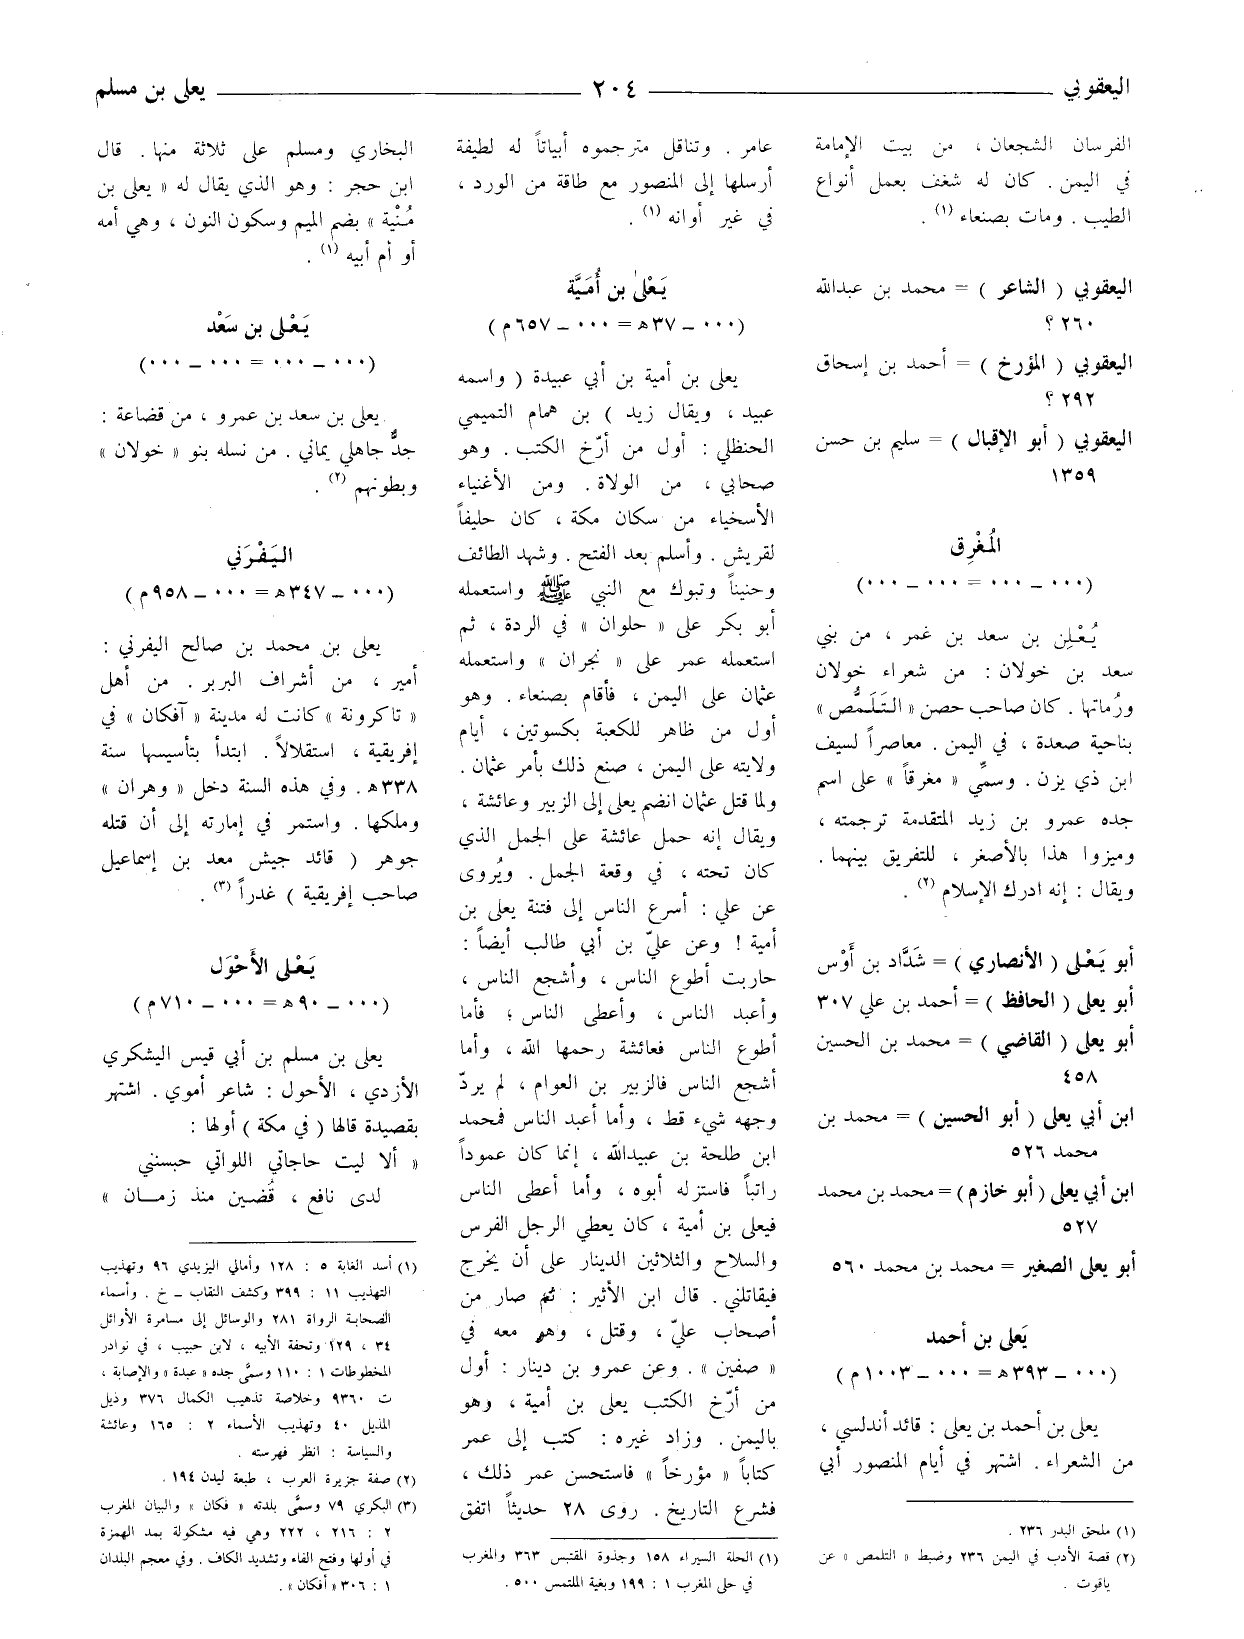 اليعقوبي ٢٠٤ يعلى بن مسلم
الفرسان الشجعان ، من بيت الإمامة
في اليمن . كان له شغف بعمل أنواع
الطيب . ومات بصنعاء (١) .
اليعقوبي ( الشاعر ) = محمد بن عبدالله
٢٦٠ ؟
اليعقوبي ( المؤرخ ) = أحمد بن إسحاق
٢٩٢ ؟
اليعقوبي ( أبو الإقبال ) = سليم بن حسن
١٣٥٩
المُغْرِق
(٠٠٠ ــ ٠٠٠ = ٠٠٠ ــ ٠٠٠)
يُعْلِن بن سعد بن غمر ، من بني
سعد بن خولان : من شعراء خولان
ورُماتها . كان صاحب حصن « التَلَمُّص »
بناحية صعدة ، في اليمن . معاصراً لسيف
ابن ذي يزن . وسمِّي « مغرقاً » على اسم
جده عمرو بن زيد المتقدمة ترجمته ،
وميزوا هذا بالأصغر ، للتفريق بينهما .
ويقال : إنه ادرك الإسلام (٢) .
أبو يَعْلى ( الأنصاري ) = شَدَّاد بن أَوْس
أبو يعلى ( الحافظ ) = أحمد بن علي ٣٠٧
أبو يعلى ( القاضي ) = محمد بن الحسين
٤٥٨
ابن أبي يعلى ( أبو الحسين ) = محمد بن
محمد ٥٢٦
ابن أبي يعلى ( أبو خازم ) = محمد بن محمد
٥٢٧
أبو يعلى الصغير = محمد بن محمد ٥٦٠
يَعلى بن أحمد
(٠٠٠ ــ ٣٩٣هـ = ٠٠٠ ــ ١٠٠٣ م)
يعلى بن أحمد بن يعلى : قائد أندلسي ،
من الشعراء . اشتهر في أيام المنصور أبي
(١) ملحق البدر ٢٣٦ .
(٢) قصة الأدب في اليمن ٢٣٦ وضبط « التلمص » عن
ياقوت .
عامر . وتناقل مترجموه أبياتاً له لطيفة
أرسلها إلى المنصور مع طاقة من الورد ،
في غير أوانه (١) .
يَعْلىٰ بن أُمَيَّة
(٠٠٠ ــ ٣٧هـ = ٠٠٠ ــ ٦٥٧م)
يعلى بن أمية بن أبي عبيدة ( واسمه
عبيد ، ويقال زيد ) بن همام التميمي
الحنظلي : أول من أرّخ الكتب . وهو
صحابي ، من الولاة . ومن الأغنياء
الأسخياء من سكان مكة ، كان حليفاً
لقريش . وأسلم بعد الفتح . وشهد الطائف
وحنيناً وتبوك مع النبي ﷺ واستعمله
أبو بكر على « حلوان » في الردة ، ثم
استعمله عمر على « نجران » واستعمله
عثمان على اليمن ، فأقام بصنعاء . وهو
أول من ظاهر للكعبة بكسوتين ، أيام
ولايته على اليمن ، صنع ذلك بأمر عثمان .
ولما قتل عثمان انضم يعلى إلى الزبير وعائشة ،
ويقال إنه حمل عائشة على الجمل الذي
كان تحته ، في وقعة الجمل . ويُروى
عن علي : أسرع الناس إلى فتنة يعلى بن
أمية ! وعن عليّ بن أبي طالب أيضاً :
حاربت أطوع الناس ، وأشجع الناس ،
وأعبد الناس ، وأعطى الناس ؛ فأما
أطوع الناس فعائشة رحمها الله ، وأما
أشجع الناس فالزبير بن العوام ، لم يردّ
وجهه شيء قط ، وأما أعبد الناس فمحمد
ابن طلحة بن عبيدالله ، إنما كان عموداً
راتباً فاستزله أبوه ، وأما أعطى الناس
فيعلى بن أمية ، كان يعطي الرجل الفرس
والسلاح والثلاثين الدينار على أن يخرج
فيقاتلني . قال ابن الأثير : ثم صار من
أصحاب عليّ ، وقتل ، وهو معه في
« صفين » . وعن عمرو بن دينار : أول
من أرّخ الكتب يعلى بن أمية ، وهو
باليمن . وزاد غيره : كتب إلى عمر
كتاباً « مؤرخاً » فاستحسن عمر ذلك ،
فشرع التاريخ . روى ٢٨ حديثاً اتفق
(١) الحلة السيراء ١٥٨ وجذوة المقتبس ٣٦٣ والمغرب
في حلى المغرب ١ : ١٩٩ وبغية الملتمس ٥٠٠ .
البخاري ومسلم على ثلاثة منها . قال
ابن حجر : وهو الذي يقال له « يعلى بن
مُنْية » بضم الميم وسكون النون ، وهي أمه
أو أم أبيه (١) .
يَعْلى بن سَعْد
(٠٠٠ ــ ٠٠٠ = ٠٠٠ ــ ٠٠٠)
يعلى بن سعد بن عمرو ، من قضاعة :
جدٌّ جاهلي يماني . من نسله بنو « خولان »
وبطونهم (٢) .
اليَفْرَني
(٠٠٠ ــ ٣٤٧هـ = ٠٠٠ ــ ٩٥٨م)
يعلى بن محمد بن صالح اليفرني :
أمير ، من أشراف البربر . من أهل
« تاكرونة » كانت له مدينة « آفكان » في
إفريقية ، استقلالاً . ابتدأ بتأسيسها سنة
٣٣٨هـ . وفي هذه السنة دخل « وهران »
وملكها . واستمر في إمارته إلى أن قتله
جوهر ( قائد جيش معد بن إسماعيل
صاحب إفريقية ) غدراً (٣) .
يَعْلى الأَحْوَل
(٠٠٠ ــ ٩٠هـ = ٠٠٠ ــ ٧١٠م)
يعلى بن مسلم بن أبي قيس اليشكري
الأزدي ، الأحول : شاعر أموي . اشتهر
بقصيدة قالها ( في مكة ) أولها :
« ألا ليت حاجاتي اللواتي حبسنني
لدى نافع ، قُضين منذ زمــان »
(١) أسد الغابة ٥ : ١٢٨ وأمالي اليزيدي ٩٦ وتهذيب
التهذيب ١١ : ٣٩٩ وكشف النقاب ــ خ . وأسماء
الصحابة الرواة ٢٨١ والوسائل إلى مسامرة الأوائل
٣٤ ، ١٢٩ وتحفة الأبيه ، لابن حبيب ، في نوادر
المخطوطات ١ : ١١٠ وسمَّى جده « عبدة » والإصابة ،
ت ٩٣٦٠ وخلاصة تذهيب الكمال ٣٧٦ وذيل
المذيل ٤٠ وتهذيب الأسماء ٢ : ١٦٥ وعائشة
والسياسة : انظر فهرسته .
(٢) صفة جزيرة العرب ، طبعة ليدن ١٩٤ .
(٣) البكري ٧٩ وسمَّى بلدته « فكان » والبيان المغرب
٢ : ٢١٦ ، ٢٢٢ وهي فيه مشكولة بمد الهمزة
في أولها وفتح الفاء وتشديد الكاف . وفي معجم البلدان
١ : ٣٠٦ « أفكان » .